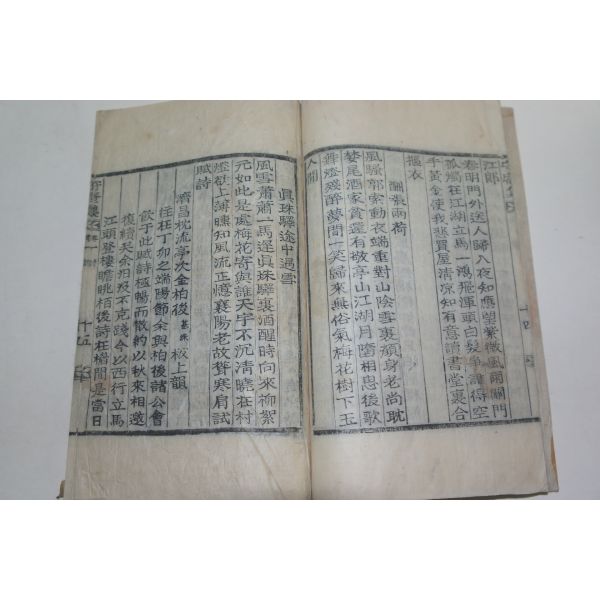 江郎
卷明門外送人歸入夜知應望紫微風雨關門
孤燭在江湖立馬一鴻飛渾頭白髮爭誰得空
手黃金使我悲買屋清凉知有意讀書堂裏合
摳衣
酬張兩荷
風騷郭索動衣端重對山陰雪裏顔身老尚耽
婪尾酒家貧還有敬亭山江湖月墮相思後歌
舞燈殘醉夢間一笑歸來無俗氣梅花樹下玉
人閒
眞珠驛途中遇雪
風雪蕭蕭一馬遲眞珠驛裏酒醒時向來柳絮
元如此是處梅花寄與誰天宇不沉淸曉在村
燈欲上薄曛知風流正憶襄陽老故聳寒肩試
賦詩
濟昌枕流亭次金柏後 板上韻
往在丁卯之端陽節余與柏後諸公會
飮于此賦詩極暢而散約以秋來相邀
復續天余汨沒不克踐今以西行立馬
江頭登樓瞻眺柏後詩在楣間是當日
十五